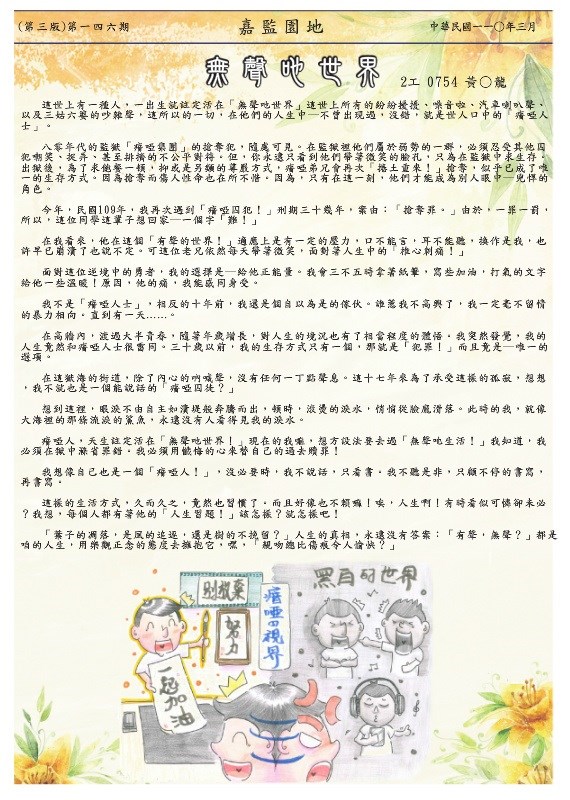 (第三版)第一四六期
嘉監園地
中華民國一一○年三月
無聲吔世界
2工 0754 黃○龍
這世上有一種人，一出生就註定活在「無聲吔世界」這世上所有的紛紛擾擾、噪音啦、汽車喇叭聲、
以及三姑六婆的吵雜聲，這所以的一切，在他們的人生中─不曾出現過，沒錯，就是世人口中的「瘖啞人
士」。
八零年代的監獄「瘖啞集團」的搶奪犯，隨處可見。在監獄裡他們屬於弱勢的一群，必須忍受其他囚
犯嘲笑、捉弄、甚至排擠的不公平對待。但，你永遠只看到他們帶著微笑的臉孔，只為在監獄中求生存。
出獄後，為了求飽餐一頓，抑或是另類的尊嚴方式，瘖啞弟兄會再次「捲土重來！」搶奪，似乎已成了唯
一的生存方式。因為搶奪而傷人性命也在所不惜。因為，只有在這一刻，他們才能成為別人眼中─兇悍的
角色。
今年，民國109年，我再次遇到「瘖啞囚犯！」刑期三十幾年，案由：「搶奪罪。」由於，一罪一罰，
所以，這位同學這輩子想回家─一個字「難！」
在我看來，他在這個「有聲的世界！」適應上是有一定的壓力，口不能言，耳不能聽，換作是我，也
許早已崩潰了也說不定。可這位老兄依然每天帶著微笑，面對著人生中的「椎心刺痛！」
面對這位逆境中的勇者，我的選擇是─給他正能量。我會三不五時拿著紙筆，寫些加油，打氣的文字
給他一些溫暖！原因，他的痛，我能感同身受。
我不是「瘖啞人士」，相反的十年前，我還是個自以為是的傢伙。誰惹我不高興了，我一定毫不留情
的暴力相向。直到有一天......。
在高牆內，渡過大半青春，隨著年歲增長，對人生的境況也有了相當程度的體悟。我突然發覺，我的
人生竟然和瘖啞人士很雷同。三十歲以前，我的生存方式只有一個，那就是「犯罪！」而且竟是─唯一的
選項。
在這獄海的街道，除了內心的吶喊聲，沒有任何一丁點聲息。這十七年來為了承受這樣的孤寂，想想
，我不就也是一個能說話的「瘖啞囚徒？」
想到這裡，眼淚不由自主如潰堤般奔騰而出，頓時，滾燙的淚水，悄悄從臉龐滑落。此時的我，就像
大海裡的那條流淚的鯊魚，永遠沒有人看得見我的淚水。
瘖啞人，天生註定活在「無聲吔世界！」現在的我嘛，想方設法要去過「無聲吔生活！」我知道，我
必須在獄中滌省罪錯。我必須用懺悔的心來替自己的過去贖罪！
我想像自己也是一個「瘖啞人！」，沒必要時，我不說話，只看書。我不聽是非，只顧不停的書寫，
再書寫。
這樣的生活方式，久而久之，竟然也習慣了。而且好像也不賴嘛！唉，人生啊！有時看似可憐卻未必
？我想，每個人都有著他的「人生習題！」該怎樣？就怎樣吧！
「葉子的凋落，是風的追逐，還是樹的不挽留？」人生的真相，永遠沒有答案：「有聲，無聲？」都是
咱的人生，用樂觀正念的態度去擁抱它，嘿，「親吻總比傷痕令人愉快？」
別放棄
努力
一起加油
瘖啞的視界
黑白的世界